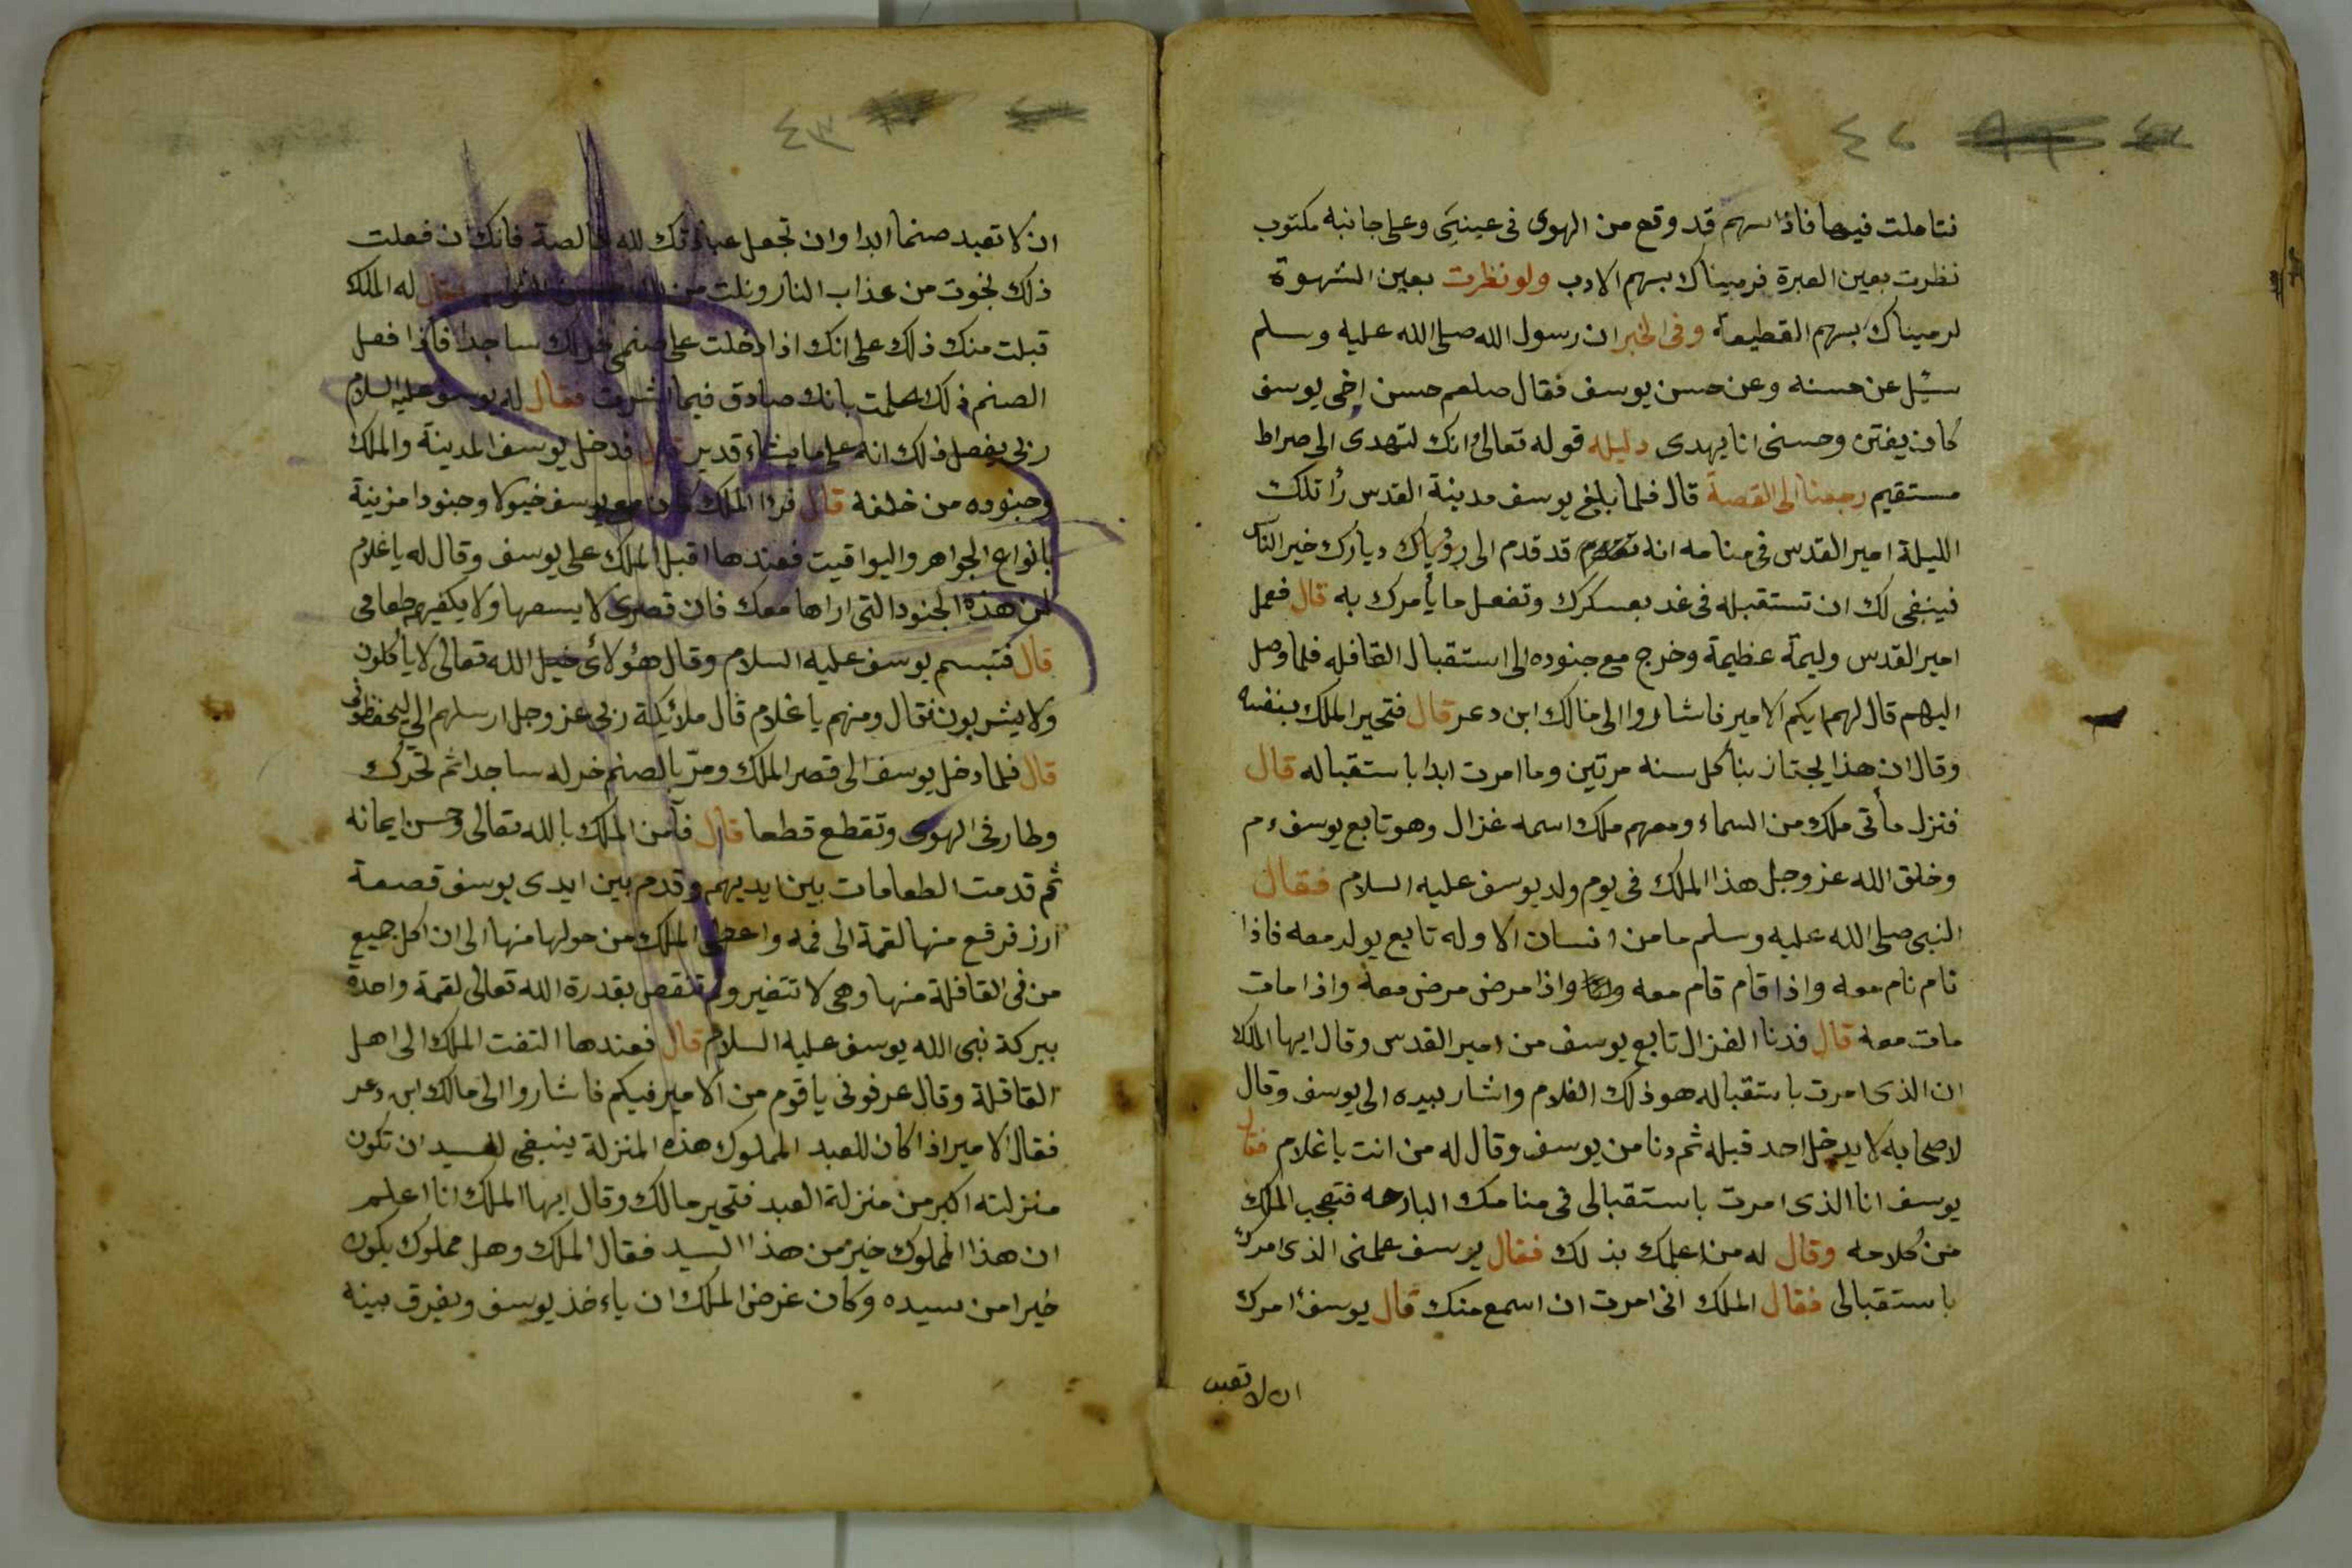 ٤٢
فتاملت فيها فاذا سهم قد وقع من الهوى فى عينى وعلى جانبه مكتوب
نظرت بعين العبرة فرميناك بسهم الادب ولو نظرت بعين الشهوة
لرميناك بسهم القطيعة وفى الخبر ان رسول الله صلى الله عليه وسلم
سئل عن حسنه وعن حسن يوسف فقال صلعم حسن اخى يوسف
كان يفتن وحسنى انا يهدى دليله قوله تعالى وانك لتهدى الى صراط
مستقيم رجعنا الى القصة قال فلما بلغ يوسف مدينة القدس رأ تلك
الليلة امير القدس فى منامه انه قد قدم الى ديارك خير الناس
فينبغى لك ان تستقبله فى غد بعسكرك وتفعل ما يأمرك به قال فعمل
امير القدس وليمة عظيمة وخرج مع جنوده الى استقبال القافله فلما وصل
اليهم قال لهم ايكم الامير فاشاروا الى مالك ابن دعر قال فتحير الملك بنفسه
وقال ان هذا يجتاز بنا كل سنه مرتين وما امرت ابدا باستقباله قال
فنزل مأتى ملك من السماء ومعهم ملك اسمه غزال وهو تابع يوسف ء م
وخلق الله عز وجل هذا الملك فى يوم ولد يوسف عليه السلام فقال
النبى صلى الله عليه وسلم ما من انسان الا وله تابع يولد معه فاذا
نام نام معه واذا قام قام معه واذا مرض مرض معه واذا مات
مات معه قال فدنا الغزال تابع يوسف من امير القدس وقال ايها الملك
ان الذى امرت باستقباله هو ذلك الغلام واشار بيده الى يوسف وقال
لاصحابه لا يدخل احد قبله ثم دنا من يوسف وقال له من انت يا غلام فقال
يوسف انا الذى امرت باستقبالى فى منامك البارحه فتعجب الملك
من كلامه وقال له من اعلمك بذلك فقال يوسف علمنى الذى امرك
باستقبالى فقال الملك انى امرت ان اسمع منك قال يوسف امرك
ان لا تعبد
٤٣
ان لا تعبد صنما ابدا وان تجعل عبادتك لله خالصة فانك ان فعلت
ذلك نجوت من عذاب النار ونلت من الله فقال له الملك
قبلت منك ذلك على انك اذا دخلت على صنمى خر لك ساجدا فاذا فعل
الصنم ذلك علمت بانك صادق فيما اشرت فقال له يوسف عليه السلام
ربى يفعل ذلك انه على ما يشاء قدير قال فدخل يوسف المدينة والملك
وجنوده من خلفه قال فرا الملك مع يوسف خيولا وجنودا مزينة
بانواع الجواهر واليواقيت فعندها اقبل الملك على يوسف وقال له يا غلام
لمن هذه الجنود التى اراها معك فان قصرى لا يسعها ولا يكفيهم طعامى
قال فتبسم يوسف عليه السلام وقال هؤلائ خيل الله تعالى لا يأكلون
ولا يشربون فقال ومنهم يا غلام قال ملائكة ربى عز وجل ارسلهم الى ليحفظونى
قال فلما دخل يوسف الى قصر الملك ومرّ بالصنم خر له ساجدا ثم تحرك
وطار فى الهوى وتقطع قطعا قال فآمن الملك بالله تعالى وحسن ايمانه
ثم قدمت الطعامات بين ايديهم وقدم بين ايدى يوسف قصعة
ارز فرفع منها لقمة الى فمه واعطى الملك من حولها منها الى ان اكل جميع
من فى القافلة منها وهى لا تتغير ولم تنقص بقدرة الله تعالى لقمة واحدة
ببركة نبى الله يوسف عليه السلام قال فعندها التفت الملك الى اهل
القافلة وقال عرفونى يا قوم من الامير فيكم فاشاروا الى مالك ابن دعر
فقال الامير اذا كان للعبد المملوك هذه المنزلة ينبغى لسيد ان تكون
منزلته اكبر من منزلة العبد فتحير مالك وقال ايها الملك انا اعلم
ان هذا المملوك خير من هذا السيد فقال الملك وهل مملوك يكون
خيرا من سيده وكان غرض الملك ان ياءخذ يوسف ويفرق بينه